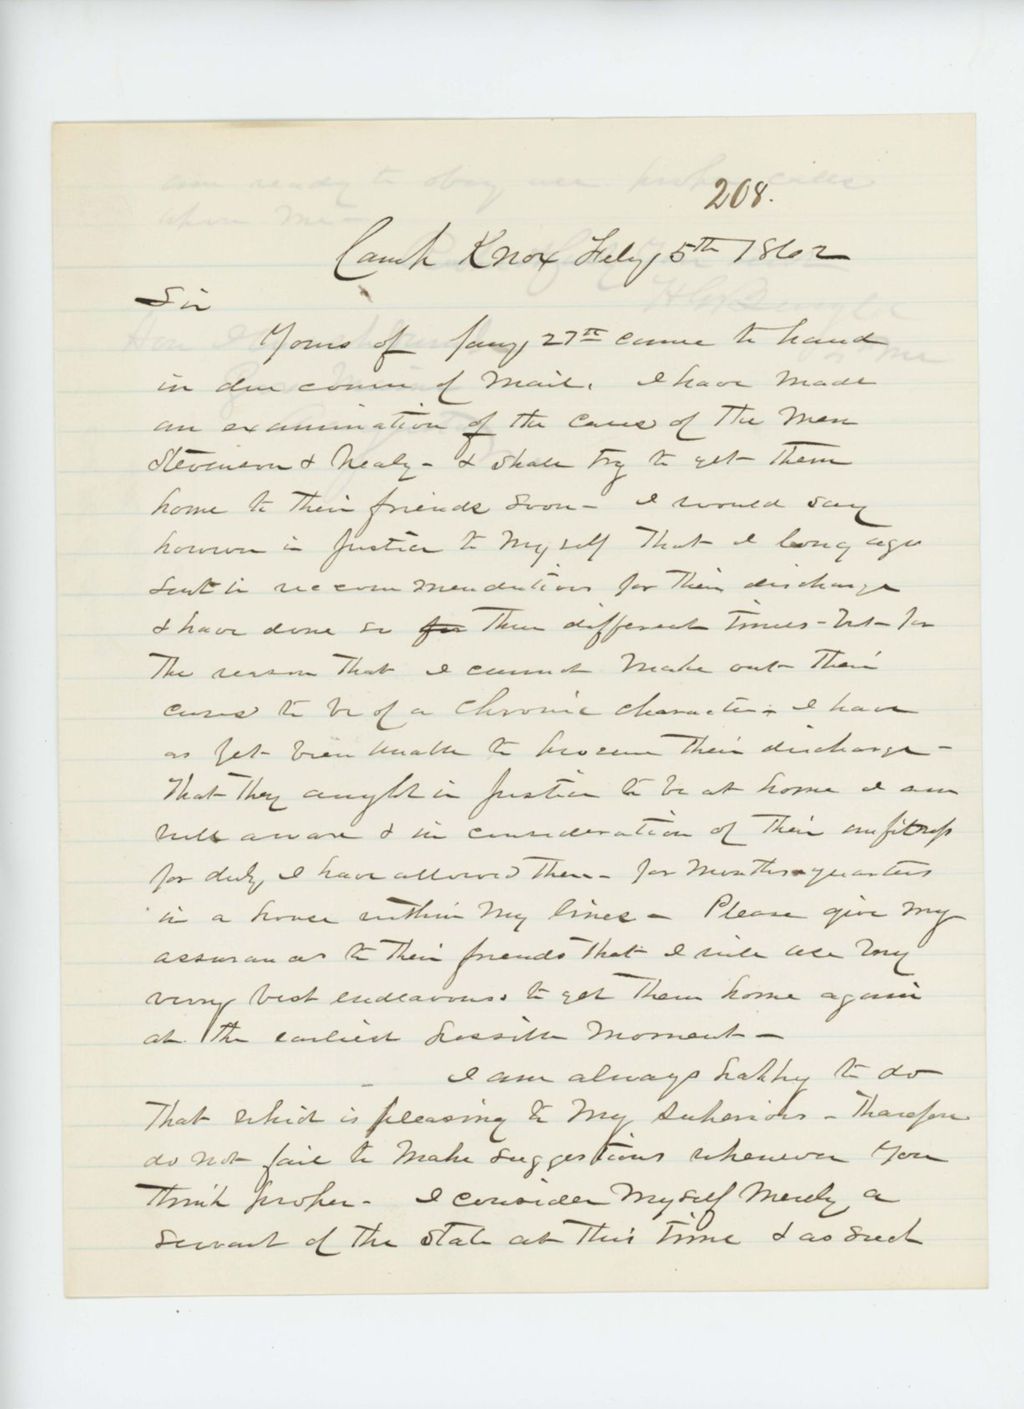 208.
Camp Knox Feby 5th 1862
Sir
Yours of Jany 27th came to hand
in due course of mail. I have made
an examination of the cases of the men
Stevenson & Nealy - & shall try to get them
home to their friends soon - I would say
however in justice to myself that I long ago
sent in reccommendations for their discharge
& have done so for three different times - but for
the reason that I cannot make out their
cases to be of a Chronic character - I have
as yet been unable to procure their discharge -
That they aught in justice to be at home I am
well aware & in consideration of their unfitness
for duty I have allowed them - for months - quarters
in a house within my lines - Please give my
assurances to their friends that I will use my
verry best endeavours to get them home again
at the earliest possible moment -
I am always happy to do
that which is pleasing to my superiors - Therefore
do not fail to make suggestions whenever you
think proper - I consider myself merely a
servant of the State at this time & as such